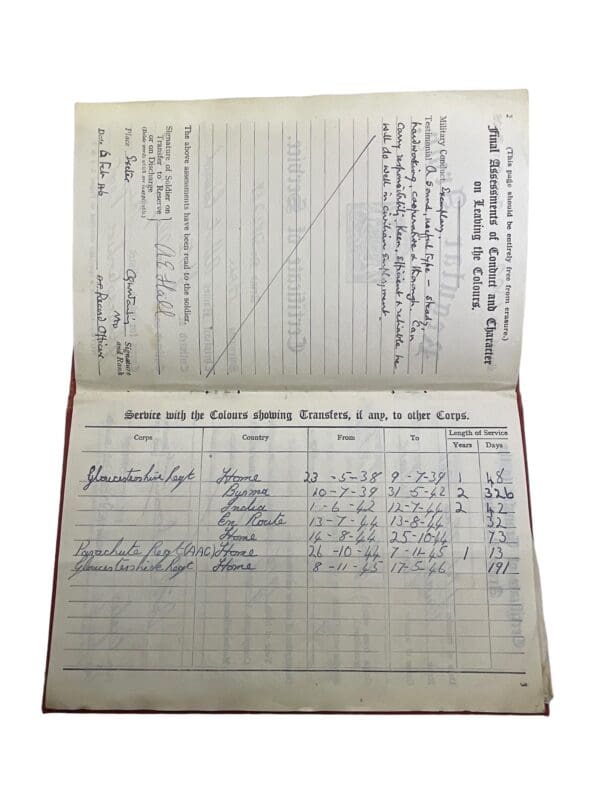 2
(This page should be entirely free from erasure.)
Final Assessments of Conduct and Character
on Leaving the Colours.
Military Conduct Exemplary.
Testimonial A sound, useful type – steady,
hardworking, cooperative & thorough. Can
carry responsibility. Keen, efficient & reliable he
will do well in civilian employment.
The above assessments have been read to the soldier.
Signature of Soldier on
Transfer to Reserve
or on Discharge
A E Hall
Place Exeter
Signature
and Rank
Date 6 Feb 46
Record Officer
Service with the Colours showing Transfers, if any, to other Corps.
Corps Country From To Length of Service
Years Days
Gloucestershire Regt Home 23-5-38 9-7-39 1 48
Burma 10-7-39 31-5-42 2 326
India 1-6-42 12-7-44 2 42
En Route 13-7-44 13-8-44 32
Home 14-8-44 25-10-44 73
Parachute Regt (AAC) Home 26-10-44 7-11-45 1 13
Gloucestershire Regt Home 8-11-45 17-5-46 191
3